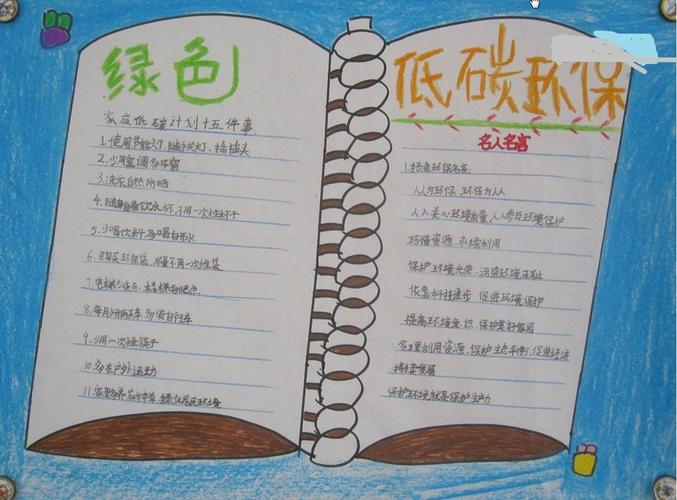 绿色
家庭低碳计划十五件事
1.使用节能灯 随手关灯、拔插头
2.少用空调多开窗
3.洗衣自然阴晒
4.随身自备饮水杯,不用一次性杯子
5.少喝饮料多喝白开水
6.购买环保袋 尽量不用一次性袋
7.
8.每月少开车多骑自行车
9.少用一次性筷子
10.多在户外运动
11.家里多养花水中草 绿化居住环境
低碳环保
名人名言
1.经典环保名言:
人人为环保 环保为人人
人人关心环境质量,人人参与环境保护
珍惜资源、永续利用
保护环境光荣,污染环境可耻
依靠科技进步 促进环境保护
提高环境意识 保护美好家园
合理利用资源,保护生态平衡,促进经济
持续发展
保护环境就是保护生产力